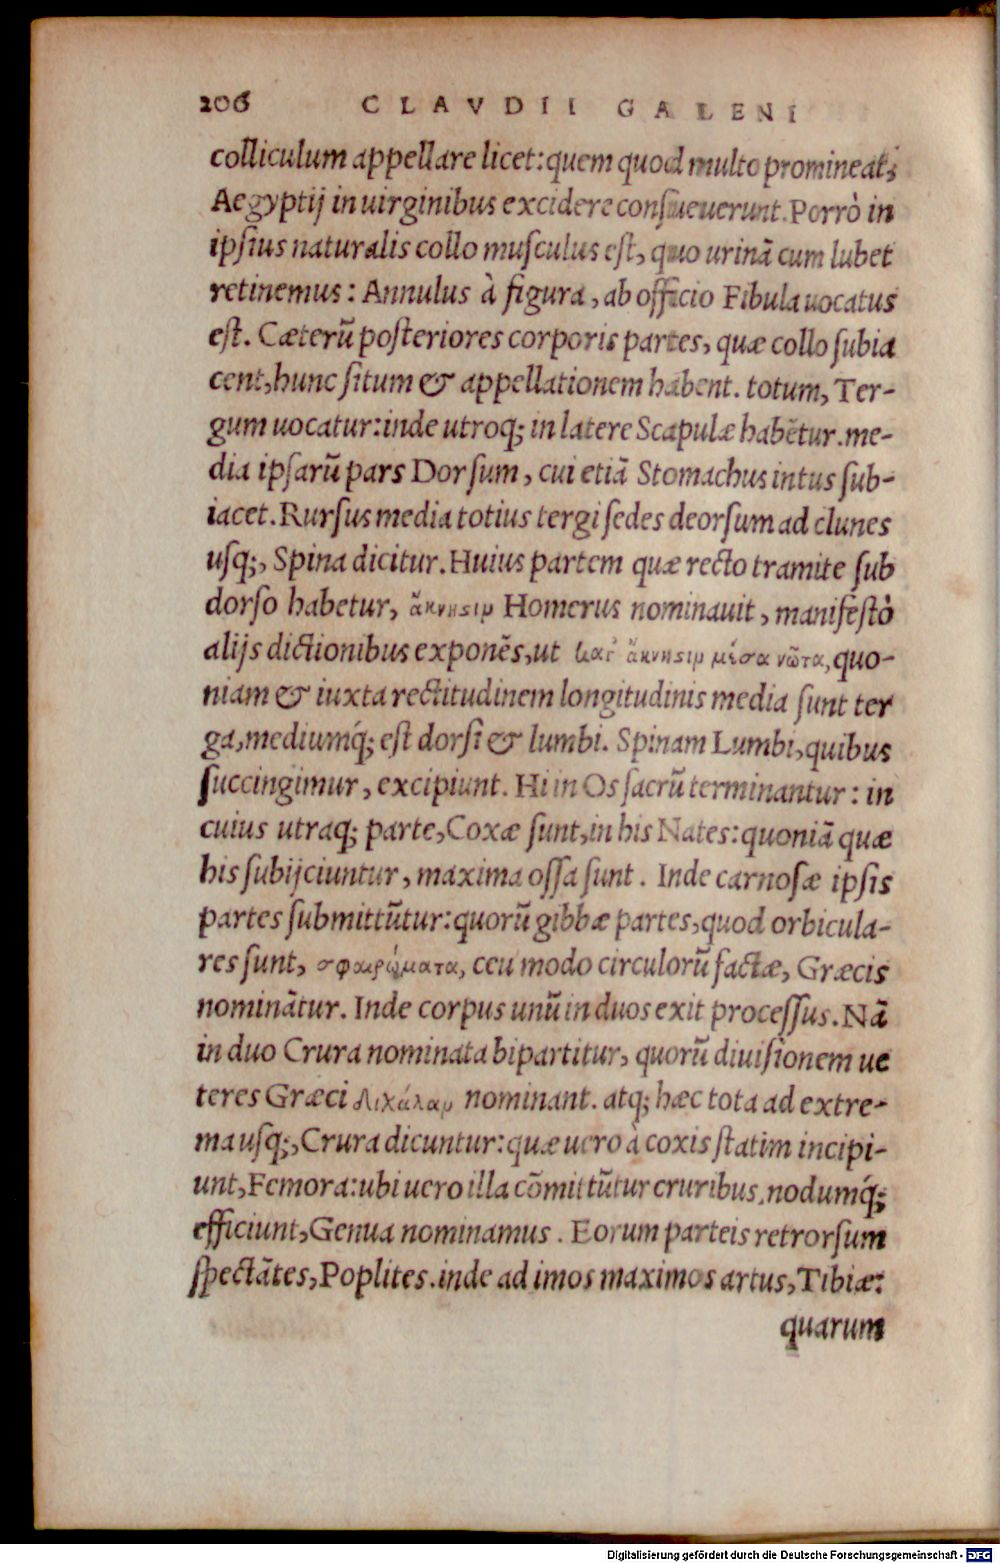 206 CLAVDII GALENI
colliculum appellare licet: quem quod multo promineat,
Aegyptij in uirginibus excidere consueuerunt. Porrò in
ipsius naturalis collo musculus est, quo urinã cum lubet
retinemus: Annulus à figura, ab officio Fibula uocatus
est. Cæterũ posteriores corporis partes, quæ collo subia
cent, hunc situm & appellationem habent. totum, Ter-
gum uocatur: inde utroq; in latere Scapulæ habẽtur. me-
dia ipsarũ pars Dorsum, cui etiã Stomachus intus sub-
iacet. Rursus media totius tergi sedes deorsum ad clunes
usq;, Spina dicitur. Huius partem quæ recto tramite sub
dorso habetur, ἄκνησιμ Homerus nominauit, manifestò
alijs dictionibus exponẽs, ut κατ᾽ ἄκνησιμ μέσα νῶτα, quo-
niam & iuxta rectitudinem longitudinis media sunt ter
ga, mediumq́; est dorsi & lumbi. Spinam Lumbi, quibus
succingimur, excipiunt. Hi in Os sacrũ terminantur: in
cuius utraq; parte, Coxæ sunt, in his Nates: quoniã quæ
his subijciuntur, maxima ossa sunt. Inde carnosæ ipsis
partes submittũtur: quorũ gibbæ partes, quod orbicula-
res sunt, σφαιρώματα, ceu modo circulorũ factæ, Græcis
nominãtur. Inde corpus unũ in duos exit processus. Nã
in duo Crura nominata bipartitur, quorũ diuisionem ue
teres Græci Διχάλαμ nominant. atq; hæc tota ad extre-
ma usq;, Crura dicuntur: quæ uero à coxis statim incipi-
unt, Femora: ubi uero illa cõmittũtur cruribus, nodumq́;
efficiunt, Genua nominamus. Eorum parteis retrorsum
spectãtes, Poplites. inde ad imos maximos artus, Tibiæ:
quarum
Digitalisierung gefördert durch die Deutsche Forschungsgemeinschaft - DFG